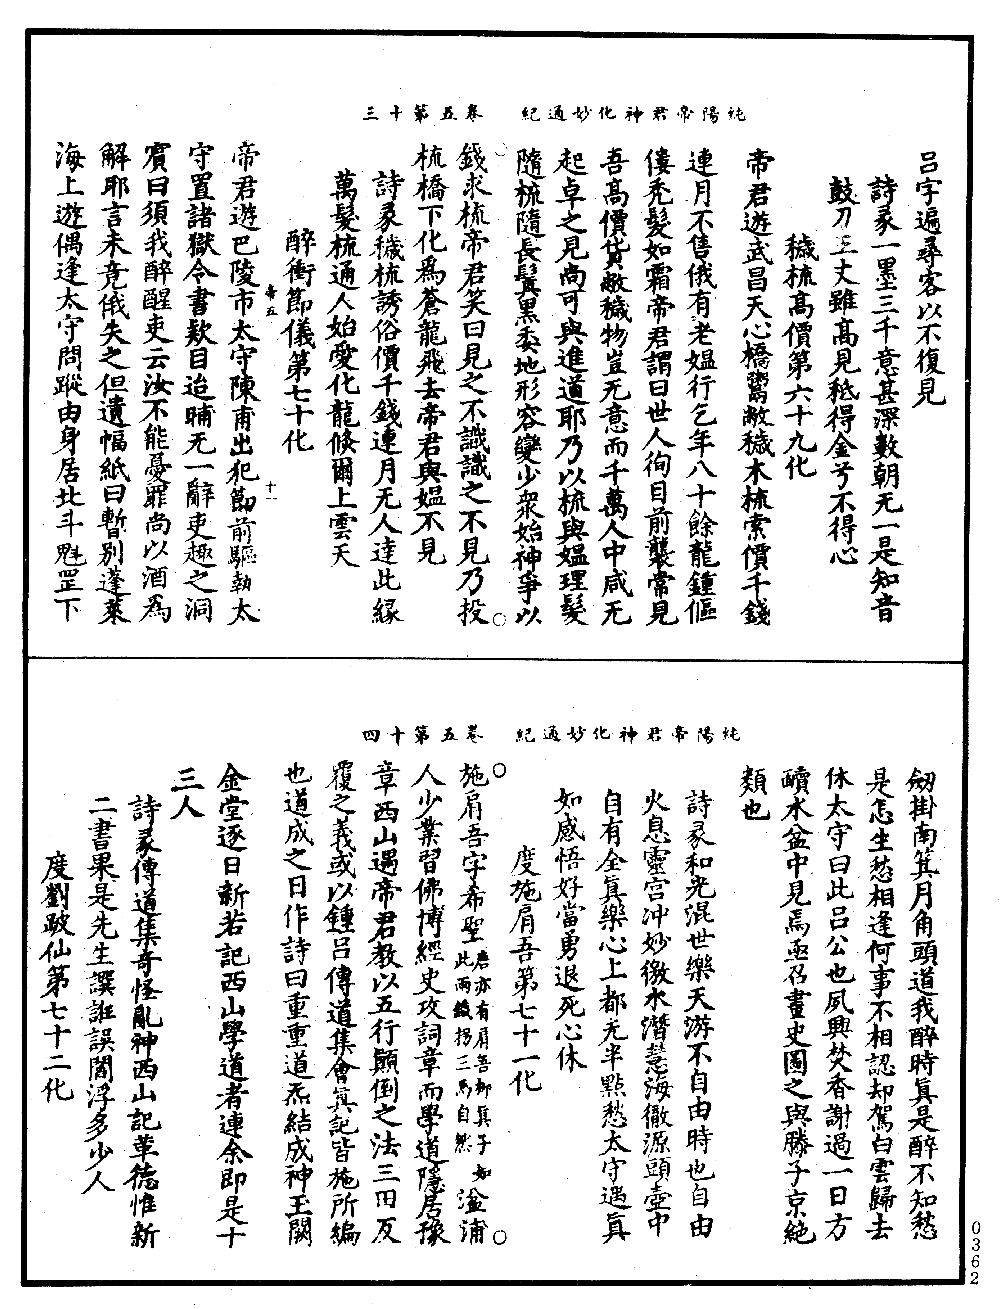 純陽帝君神化妙通紀　卷五第十三
呂字遍尋客以不復見
詩彖一墨三千意甚深數朝无一是知音
鼓刀三丈雖高見秪得金兮不得心
穢梳高價第六十九化
帝君遊武昌天心橋鬻敝穢木梳索價千錢
連月不售俄有老媼行乞年八十餘龍鍾傴
僂秃髮如霜帝君謂曰世人徇目前襲常見
吾高價貨敝穢物豈无意而千萬人中咸无
起卓之見尚可與進道耶乃以梳與媼理髮
隨梳隨長鬒黑委地形容變少衆始神爭以
錢求梳帝君笑曰見之不識識之不見乃投
梳橋下化爲蒼龍飛去帝君與媼不見
詩彖穢梳誘俗價千錢連月无人達此緣
萬髮梳通人始愛化龍倐爾上雲天
醉衝節儀第七十化
帝五　十一
帝君遊巴陵市太守陳甫出犯節前驅執太
守置諸獄令書欵目迨晡无一辭吏趣之洞
賓曰須我醉醒吏云汝不能憂罪尚以酒爲
解耶言未竟俄失之但遺幅紙曰暫別蓬萊
海上遊偶逢太守問蹤由身居北斗魁罡下
純陽帝君神化妙通紀　卷五第十四
劒掛南箕月角頭道我醉時眞是醉不知愁
是怎生愁相逢何事不相認却駕白雲歸去
休太守曰此呂公也夙興焚香謝過一日方
醮水盆中見焉亟召畫史圖之與滕子京絶
類也
詩彖和光混世樂天游不自由時也自由
火息靈宫冲妙徼水濳慧海徹源頭壺中
自有全眞樂心上都无半點愁太守遇眞
如感悟好當勇退死心休
度施肩吾第七十一化
施肩吾字希聖唐亦有肩吾却眞子如此兩鐵拐三馬自然湓浦
人少業習佛博經史攻詞章而學道隱居豫
章西山遇帝君教以五行顚倒之法三田反
覆之義或以鍾呂傳道集會眞記皆施所編
也道成之日作詩曰重重道炁結成神玉闕
金堂逐日新若記西山學道者連余即是十
三人
詩彖傳道集奇怪亂神西山記革德惟新
二書果是先生譔誑誤閻浮多少人
度劉跛仙第七十二化
0362